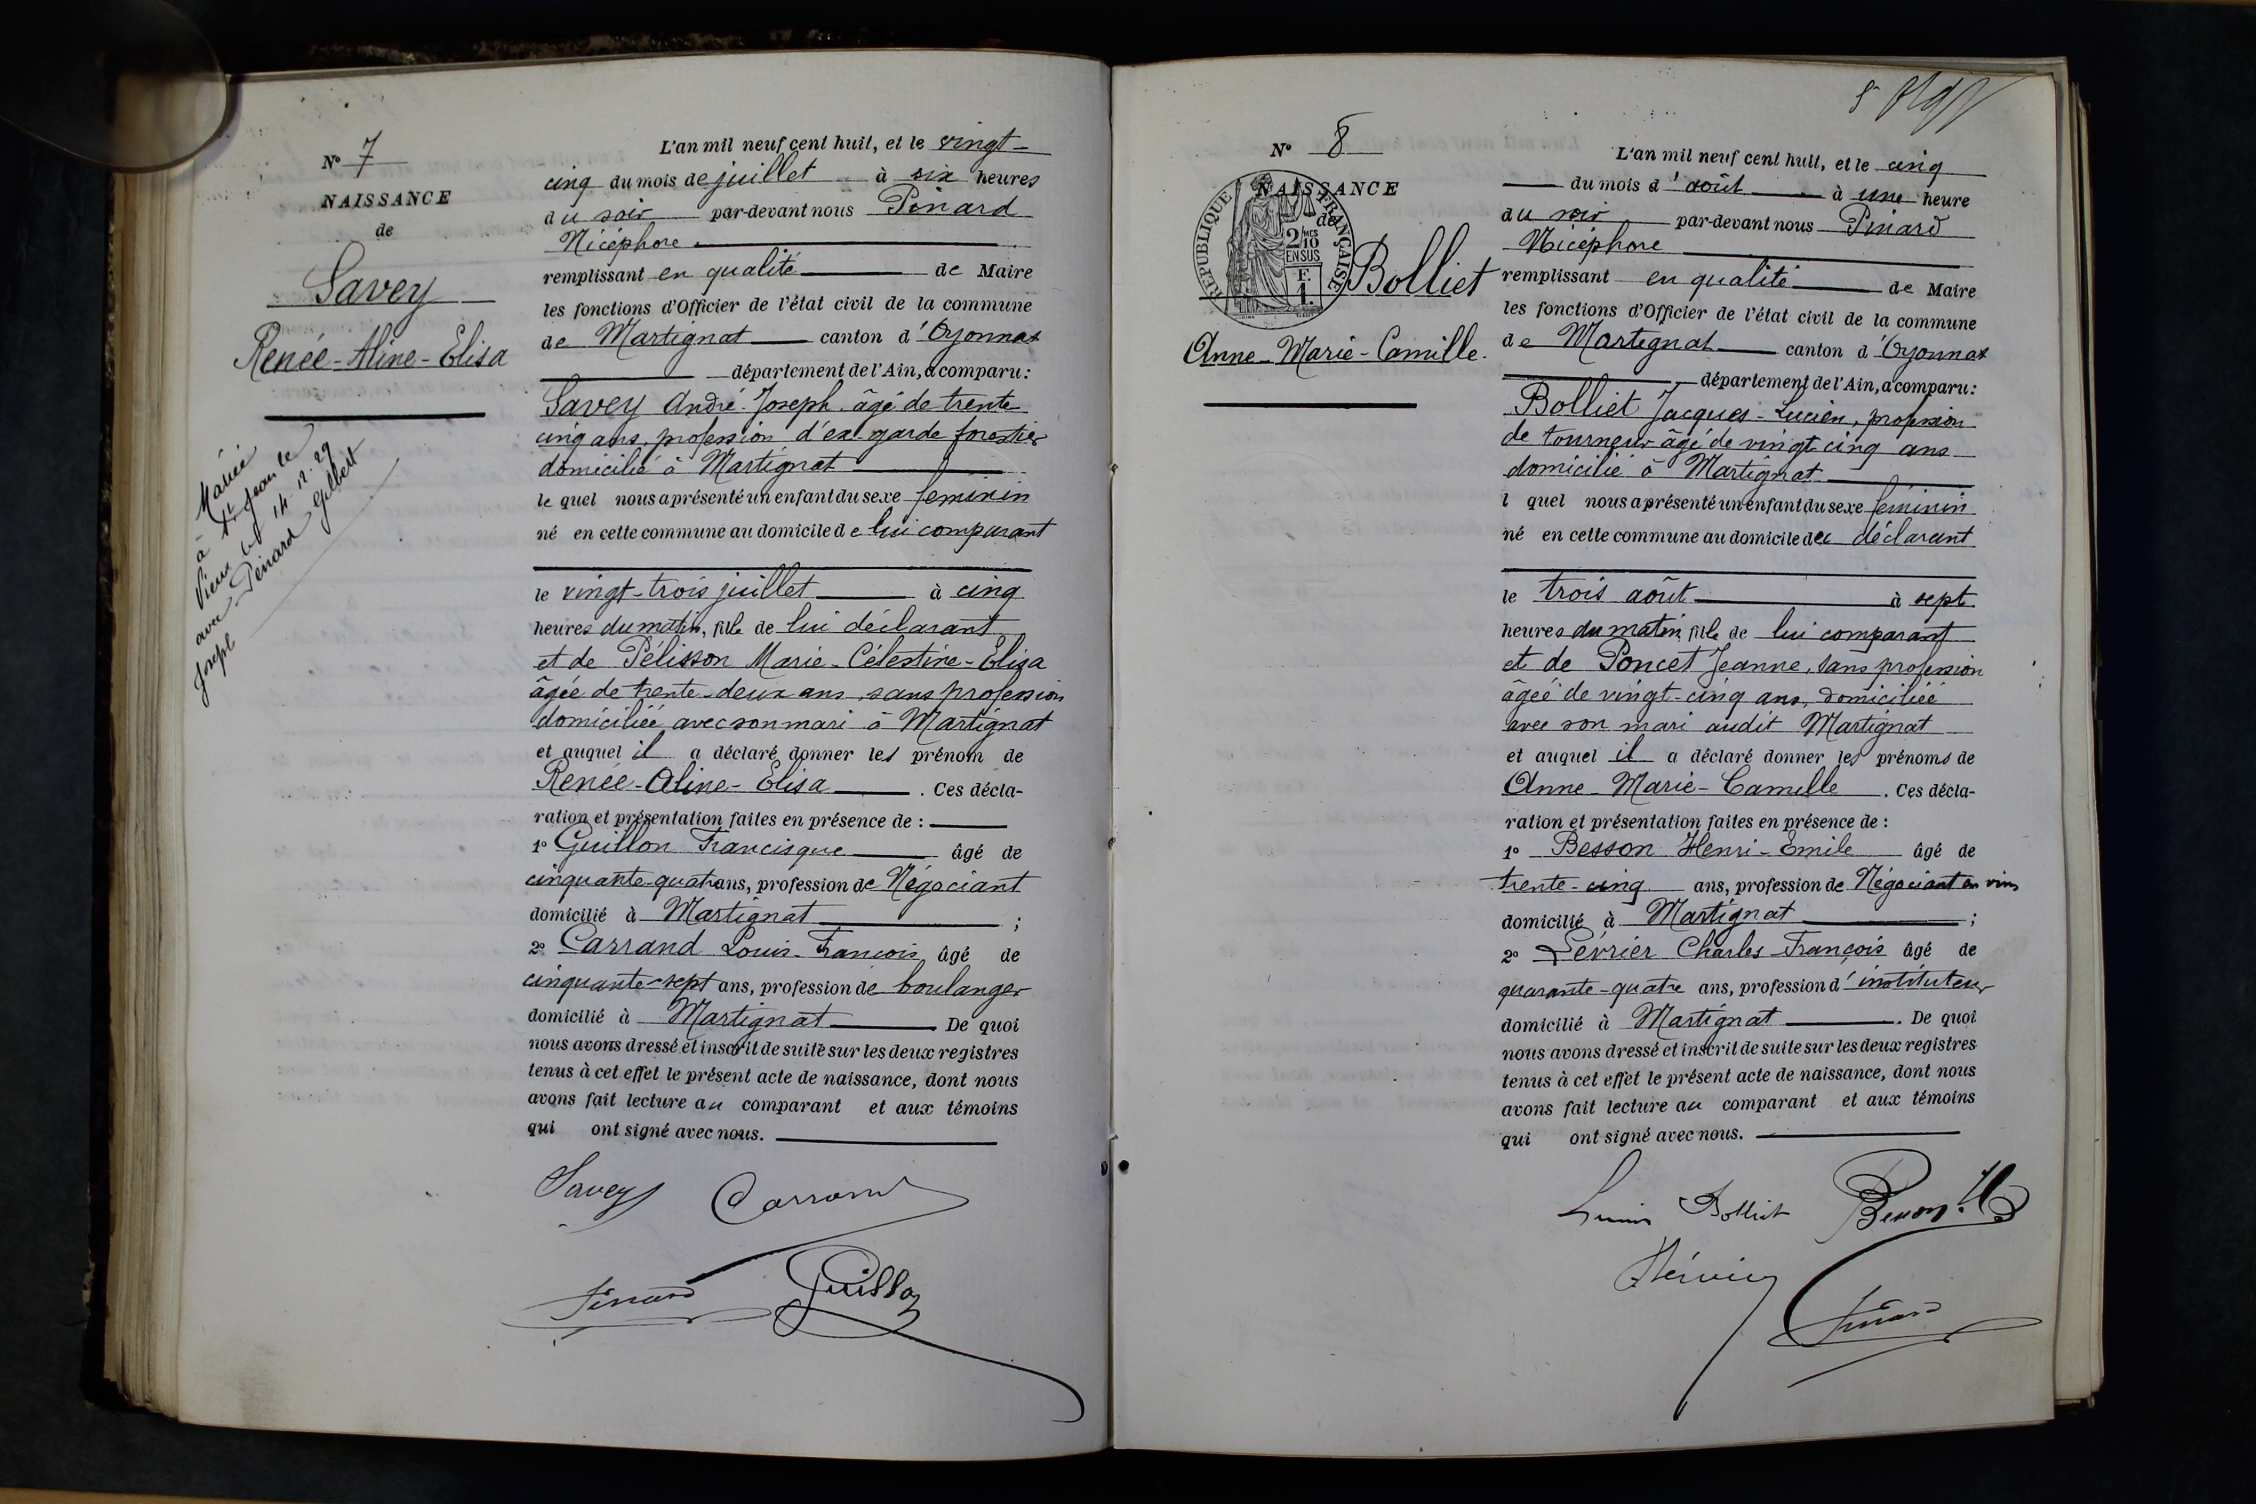 N° 7
NAISSANCE
de
Savey
Renée-Aline-Elisa
Mariée
à St Jean le
Vieux le 14.12.29
avec Pénard Gilbert
Joseph
L'an mil neuf cent huit, et le vingt-
cinq du mois de juillet à six heures
du soir par-devant nous Pinard
Nicéphore
remplissant en qualité de Maire
les fonctions d'Officier de l'état civil de la commune
de Martignat canton d'Oyonnax
département de l'Ain, a comparu:
Savey André-Joseph âgé de trente
cinq ans, profession d'ex. garde forestier
domicilié à Martignat
lequel nous a présenté un enfant du sexe feminin
né en cette commune au domicile de lui comparant
le vingt-trois juillet à cinq
heures du matin, fille de lui déclarant
et de Pélisson Marie-Célestine-Elisa
âgée de trente-deux ans, sans profession
domiciliée avec son mari à Martignat
et auquel il a déclaré donner les prénom de
Renée-Aline-Elisa. Ces décla-
ration et présentation faites en présence de :
1° Guillon Francisque âgé de
cinquante-quatre ans, profession de Négociant
domicilié à Martignat ;
2° Carrand Louis-François âgé de
cinquante-sept ans, profession de boulanger
domicilié à Martignat. De quoi
nous avons dressé et inscrit de suite sur les deux registres
tenus à cet effet le présent acte de naissance, dont nous
avons fait lecture au comparant et aux témoins
qui ont signé avec nous.
Savey Carrand
Pinard Guillon
N° 8
NAISSANCE
de
REPUBLIQUE FRANÇAISE
2 MES
10
EN SUS
F.
1.
Bolliet
Anne-Marie-Camille.
L'an mil neuf cent huit, et le cinq
du mois d'août à une heure
du soir par-devant nous Pinard
Nicéphore
remplissant en qualité de Maire
les fonctions d'Officier de l'état civil de la commune
de Martignat canton d'Oyonnax
département de l'Ain, a comparu:
Bolliet Jacques-Lucien, profession
de tourneur âgé de vingt-cinq ans
domicilié à Martignat
l quel nous a présenté un enfant du sexe féminin
né en cette commune au domicile du déclarant
le trois août à sept
heures du matin, fille de lui comparant
et de Poncet Jeanne, sans profession
âgée de vingt-cinq ans, domiciliée
avec son mari audit Martignat
et auquel il a déclaré donner les prénoms de
Anne-Marie-Camille. Ces décla-
ration et présentation faites en présence de :
1° Besson Henri-Emile âgé de
trente-cinq ans, profession de Négociant en vins
domicilié à Martignat ;
2° Charles François âgé de
quarante-quatre ans, profession d'instituteur
domicilié à Martignat. De quoi
nous avons dressé et inscrit de suite sur les deux registres
tenus à cet effet le présent acte de naissance, dont nous
avons fait lecture au comparant et aux témoins
qui ont signé avec nous.
Lucien Bolliet Besson. H
Pinard